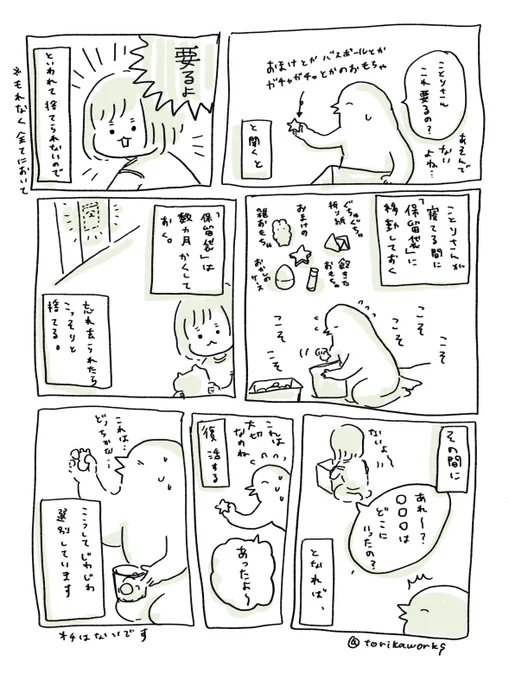 ことりさん
これ要るの?
あそんで
ない
よね…
おまけとか バスボールとか
ガチャガチャとかのおもちゃ
と聞くと
要るよ
といわれて捨てられないので
※もれなく全てにおいて
ことりさんが
寝てる間に
「保留袋」に
移動しておく
ぐちゃぐちゃ
折り紙
おまけの
雑おもちゃ
飽きた
おもちゃ
おかしの
ケース
こそ
こそ
こそ
こそ
こそ
「保留袋」は
数ヵ月かくして
おく。
忘れ去られたら
こっそりと
捨てる。
その間に
ないよ〜
あれ〜?
〇〇〇は
どこに
いったの?
となれば、
これは
大切
なのね
復活する
あったよ〜
これは…
どっちかな…
こうしてじわじわ
選別しています
オチはないです
@torikaworks